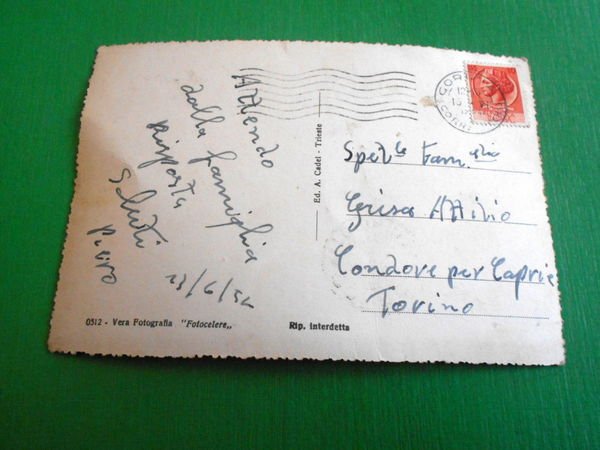 Attendo
dalla famiglia
risposta
Saluti
Piero
13/6/54
Ed. A. Cadel - Trieste
Spet.le Fam.glia
Grisa Attilio
Condove per Caprie
Torino
0512 - Vera Fotografia "Fotocelere„
Rip. interdetta